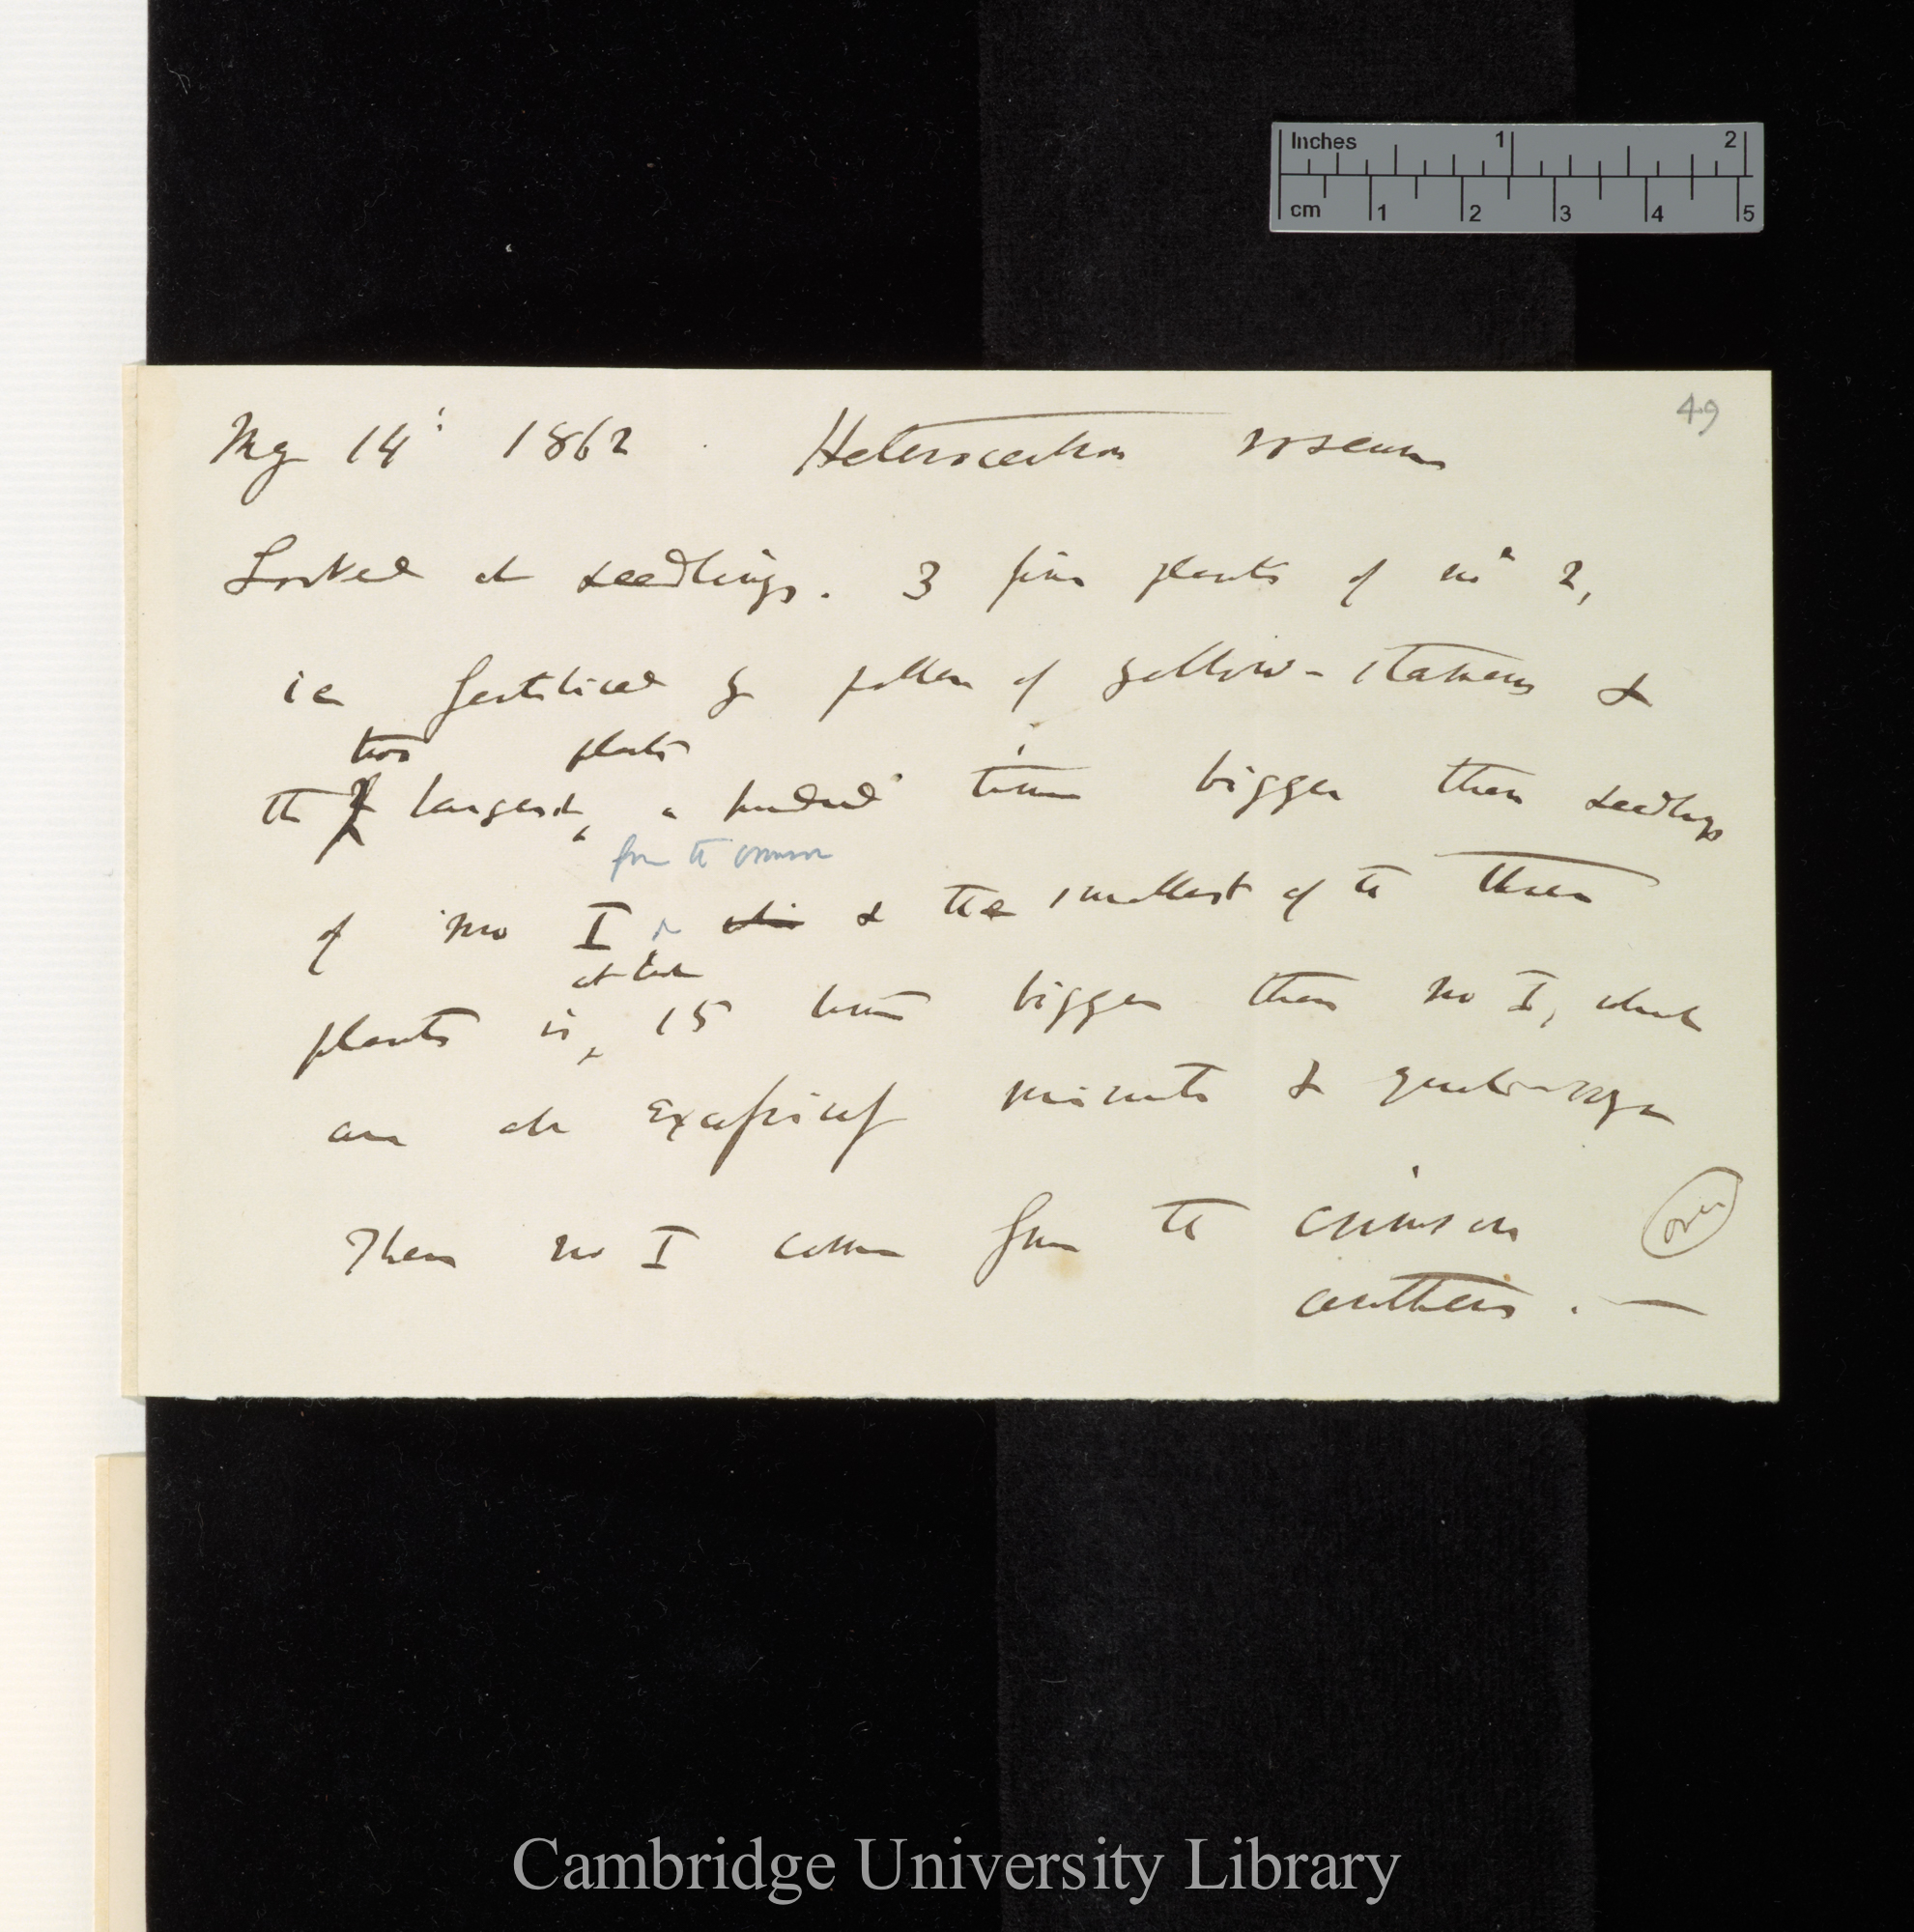 Inches 1 2
cm 1 2 3 4 5
49
May 14: 1862. Heterocentron roseum
Looked at seedlings. 3 fine plants of no 2,
ie fertilised by pollen of yellow-stamens &
two plants
the largest, a hundred times bigger than seedlings
from the crimson
of no I & the smallest of the three
at least
plants is 15 times bigger than no I, which
are all excessively minute &
These no I come from the crimson
over
anthers. —
Cambridge University Library